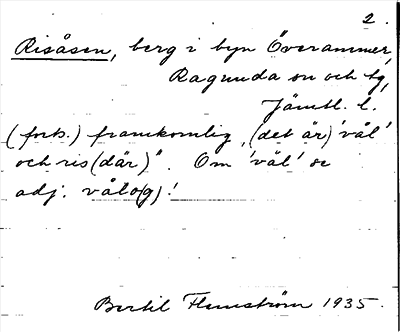 2.
Risåsen, berg i byn Överammer,
Ragunda sn och tg,
Jämtl. l.
(forts.) framkomlig, (det är) 'vål'
och ris (där)". Om 'vål' se
adj. vålo(g)!
Bertil Flemström 1935.